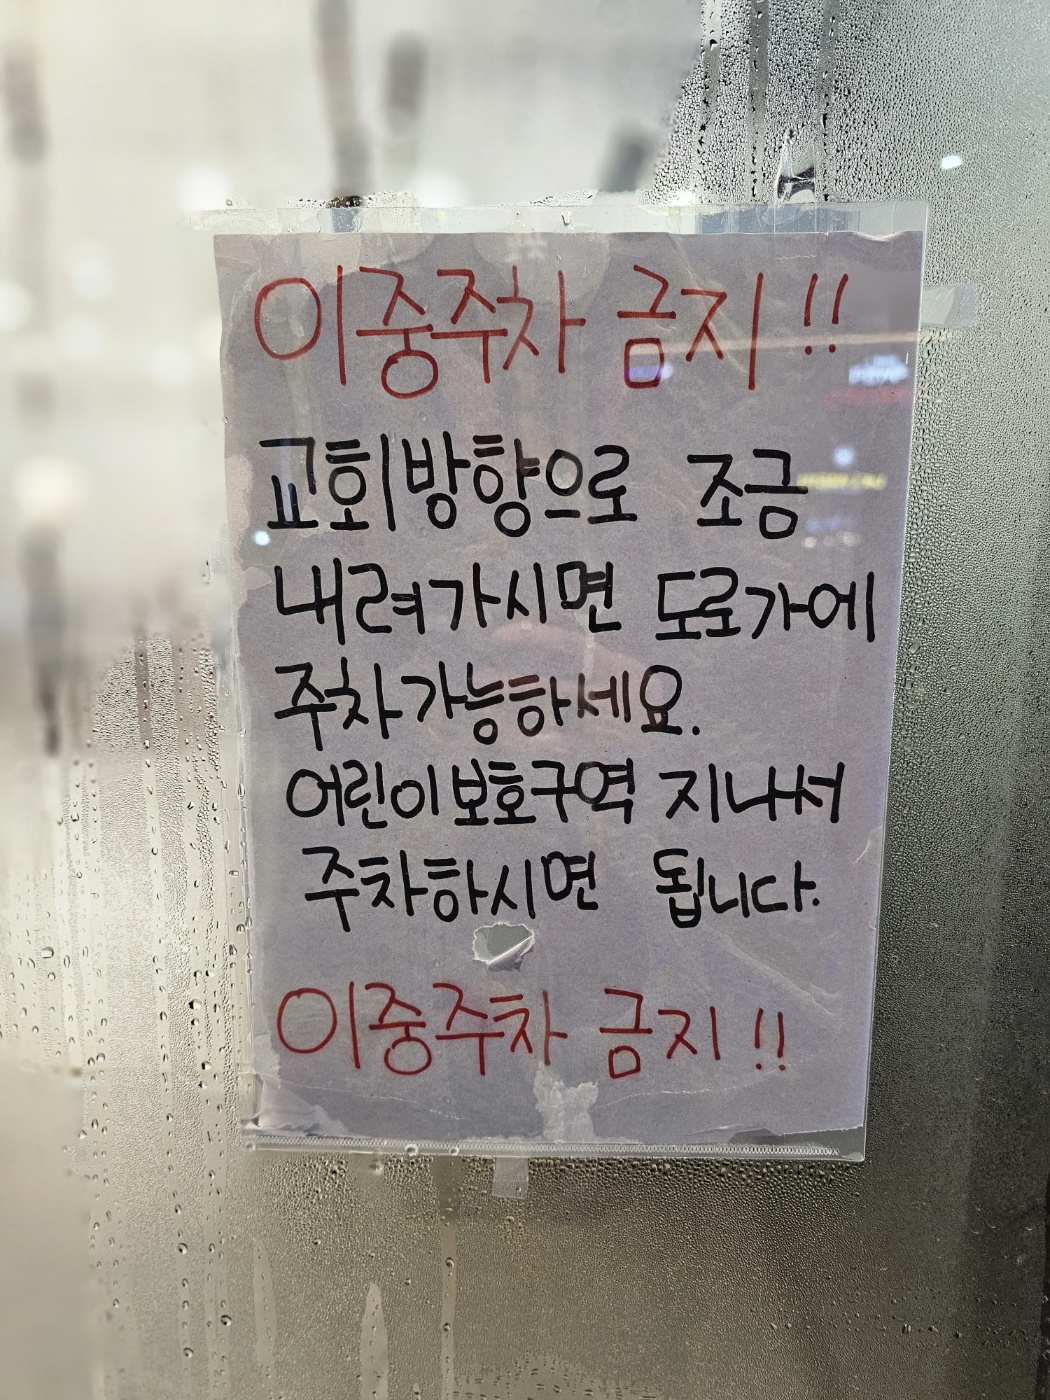 이중주차 금지!!
교회방향으로 조금
내려가시면 도로가에
주차가능하세요.
어린이보호구역 지나서
주차하시면 됩니다.
이중주차 금지!!